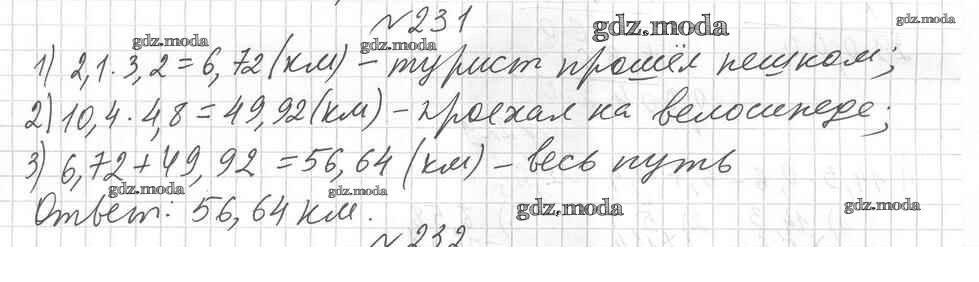 №231
1) 2,1·3,2=6,72(км) – турист прошёл пешком;
2) 10,4·4,8=49,92(км) – проехал на велосипеде;
3) 6,72+49,92=56,64(км) – весь путь
Ответ: 56,64 км.
№232
gdz.moda
gdz.moda
gdz.moda
gdz.moda
gdz.moda
gdz.moda
gdz.moda
gdz.moda